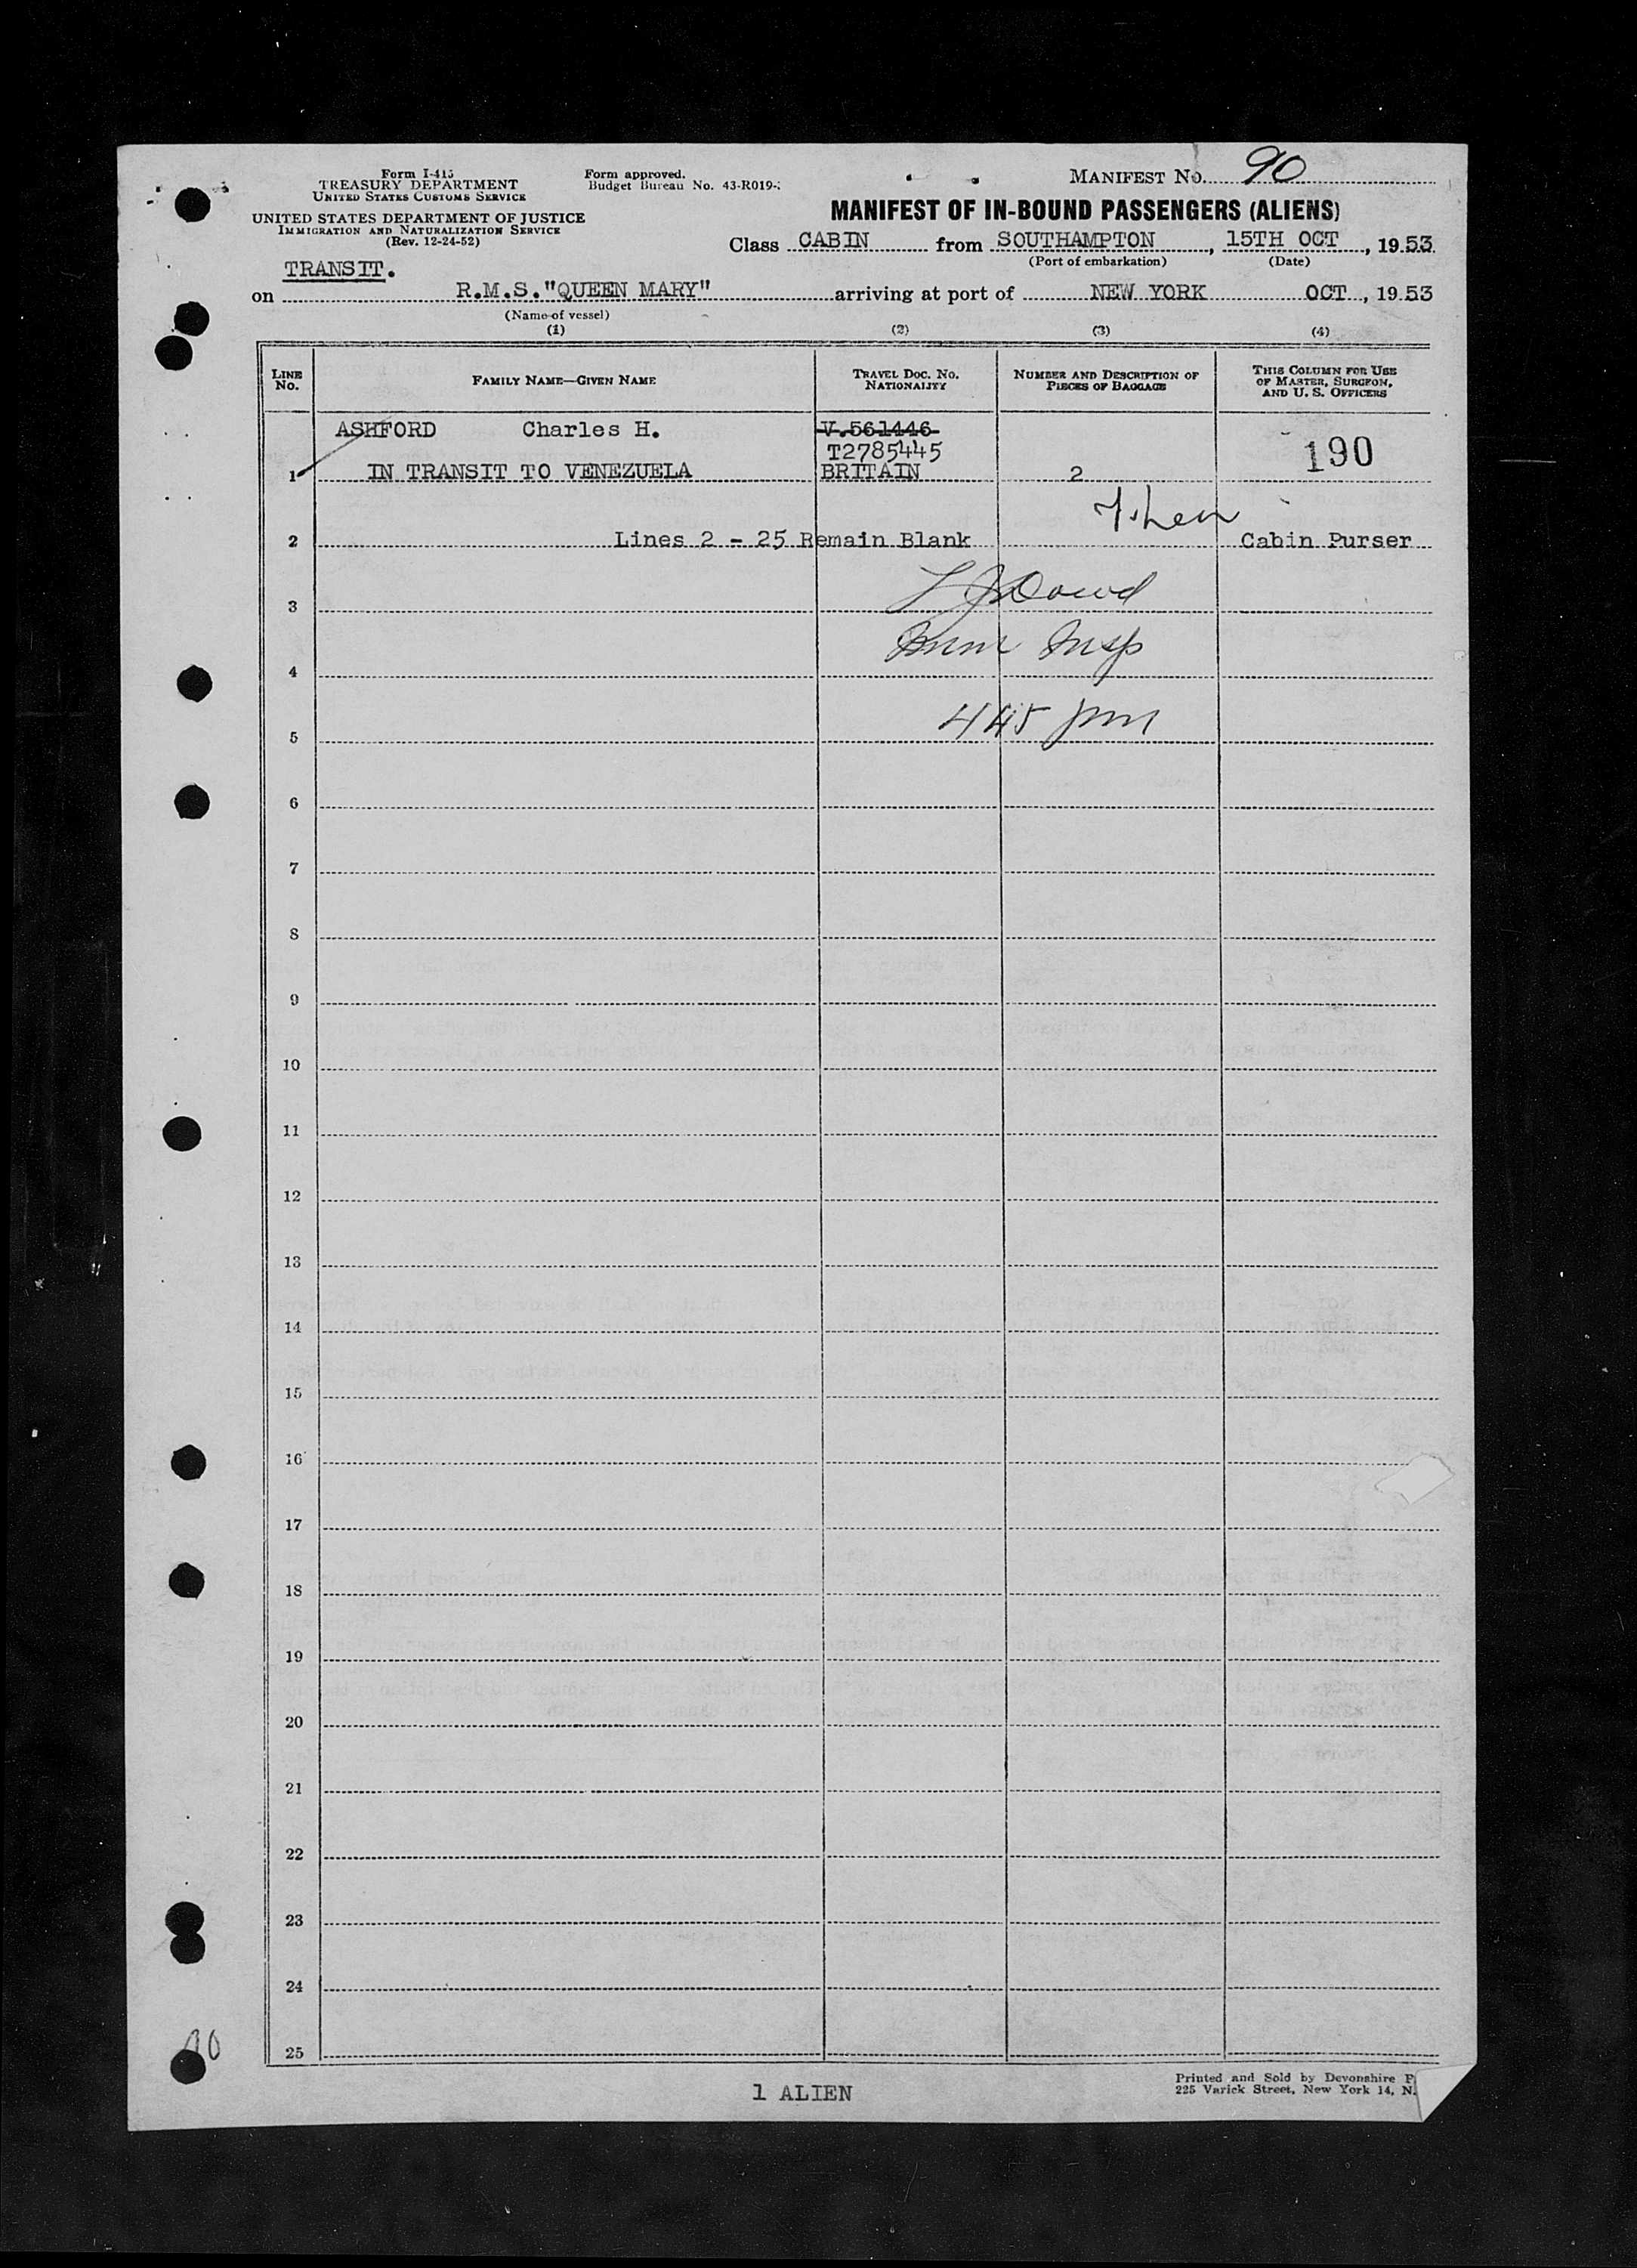 Form I-415
TREASURY DEPARTMENT
UNITED STATES CUSTOMS SERVICE
UNITED STATES DEPARTMENT OF JUSTICE
IMMIGRATION AND NATURALIZATION SERVICE
(Rev. 12-24-52)
Form approved.
Budget Bureau No. 43-R019-
MANIFEST NO. 90
MANIFEST OF IN-BOUND PASSENGERS (ALIENS)
Class CABIN from SOUTHAMPTON, 15TH OCT, 1953
(Port of embarkation) (Date)
TRANSIT.
on R.M.S."QUEEN MARY" arriving at port of NEW YORK OCT, 1953
(Name of vessel)
(1) (2) (3) (4)
LINE NO.
FAMILY NAME—GIVEN NAME
TRAVEL DOC. NO. NATIONALITY
NUMBER AND DESCRIPTION OF PIECES OF BAGGAGE
THIS COLUMN FOR USE OF MASTER, SURGEON, AND U. S. OFFICERS
ASHFORD Charles H. V.561446
T2785445 190
1 IN TRANSIT TO VENEZUELA BRITAIN 2
2 Lines 2 - 25 Remain Blank Cabin Purser
3 Dowd
4 Imm Insp
5 445 pm
6
7
8
9
10
11
12
13
14
15
16
17
18
19
20
21
22
23
24
25
1 ALIEN
Printed and Sold by Devonshire P
225 Varick Street, New York 14, N.